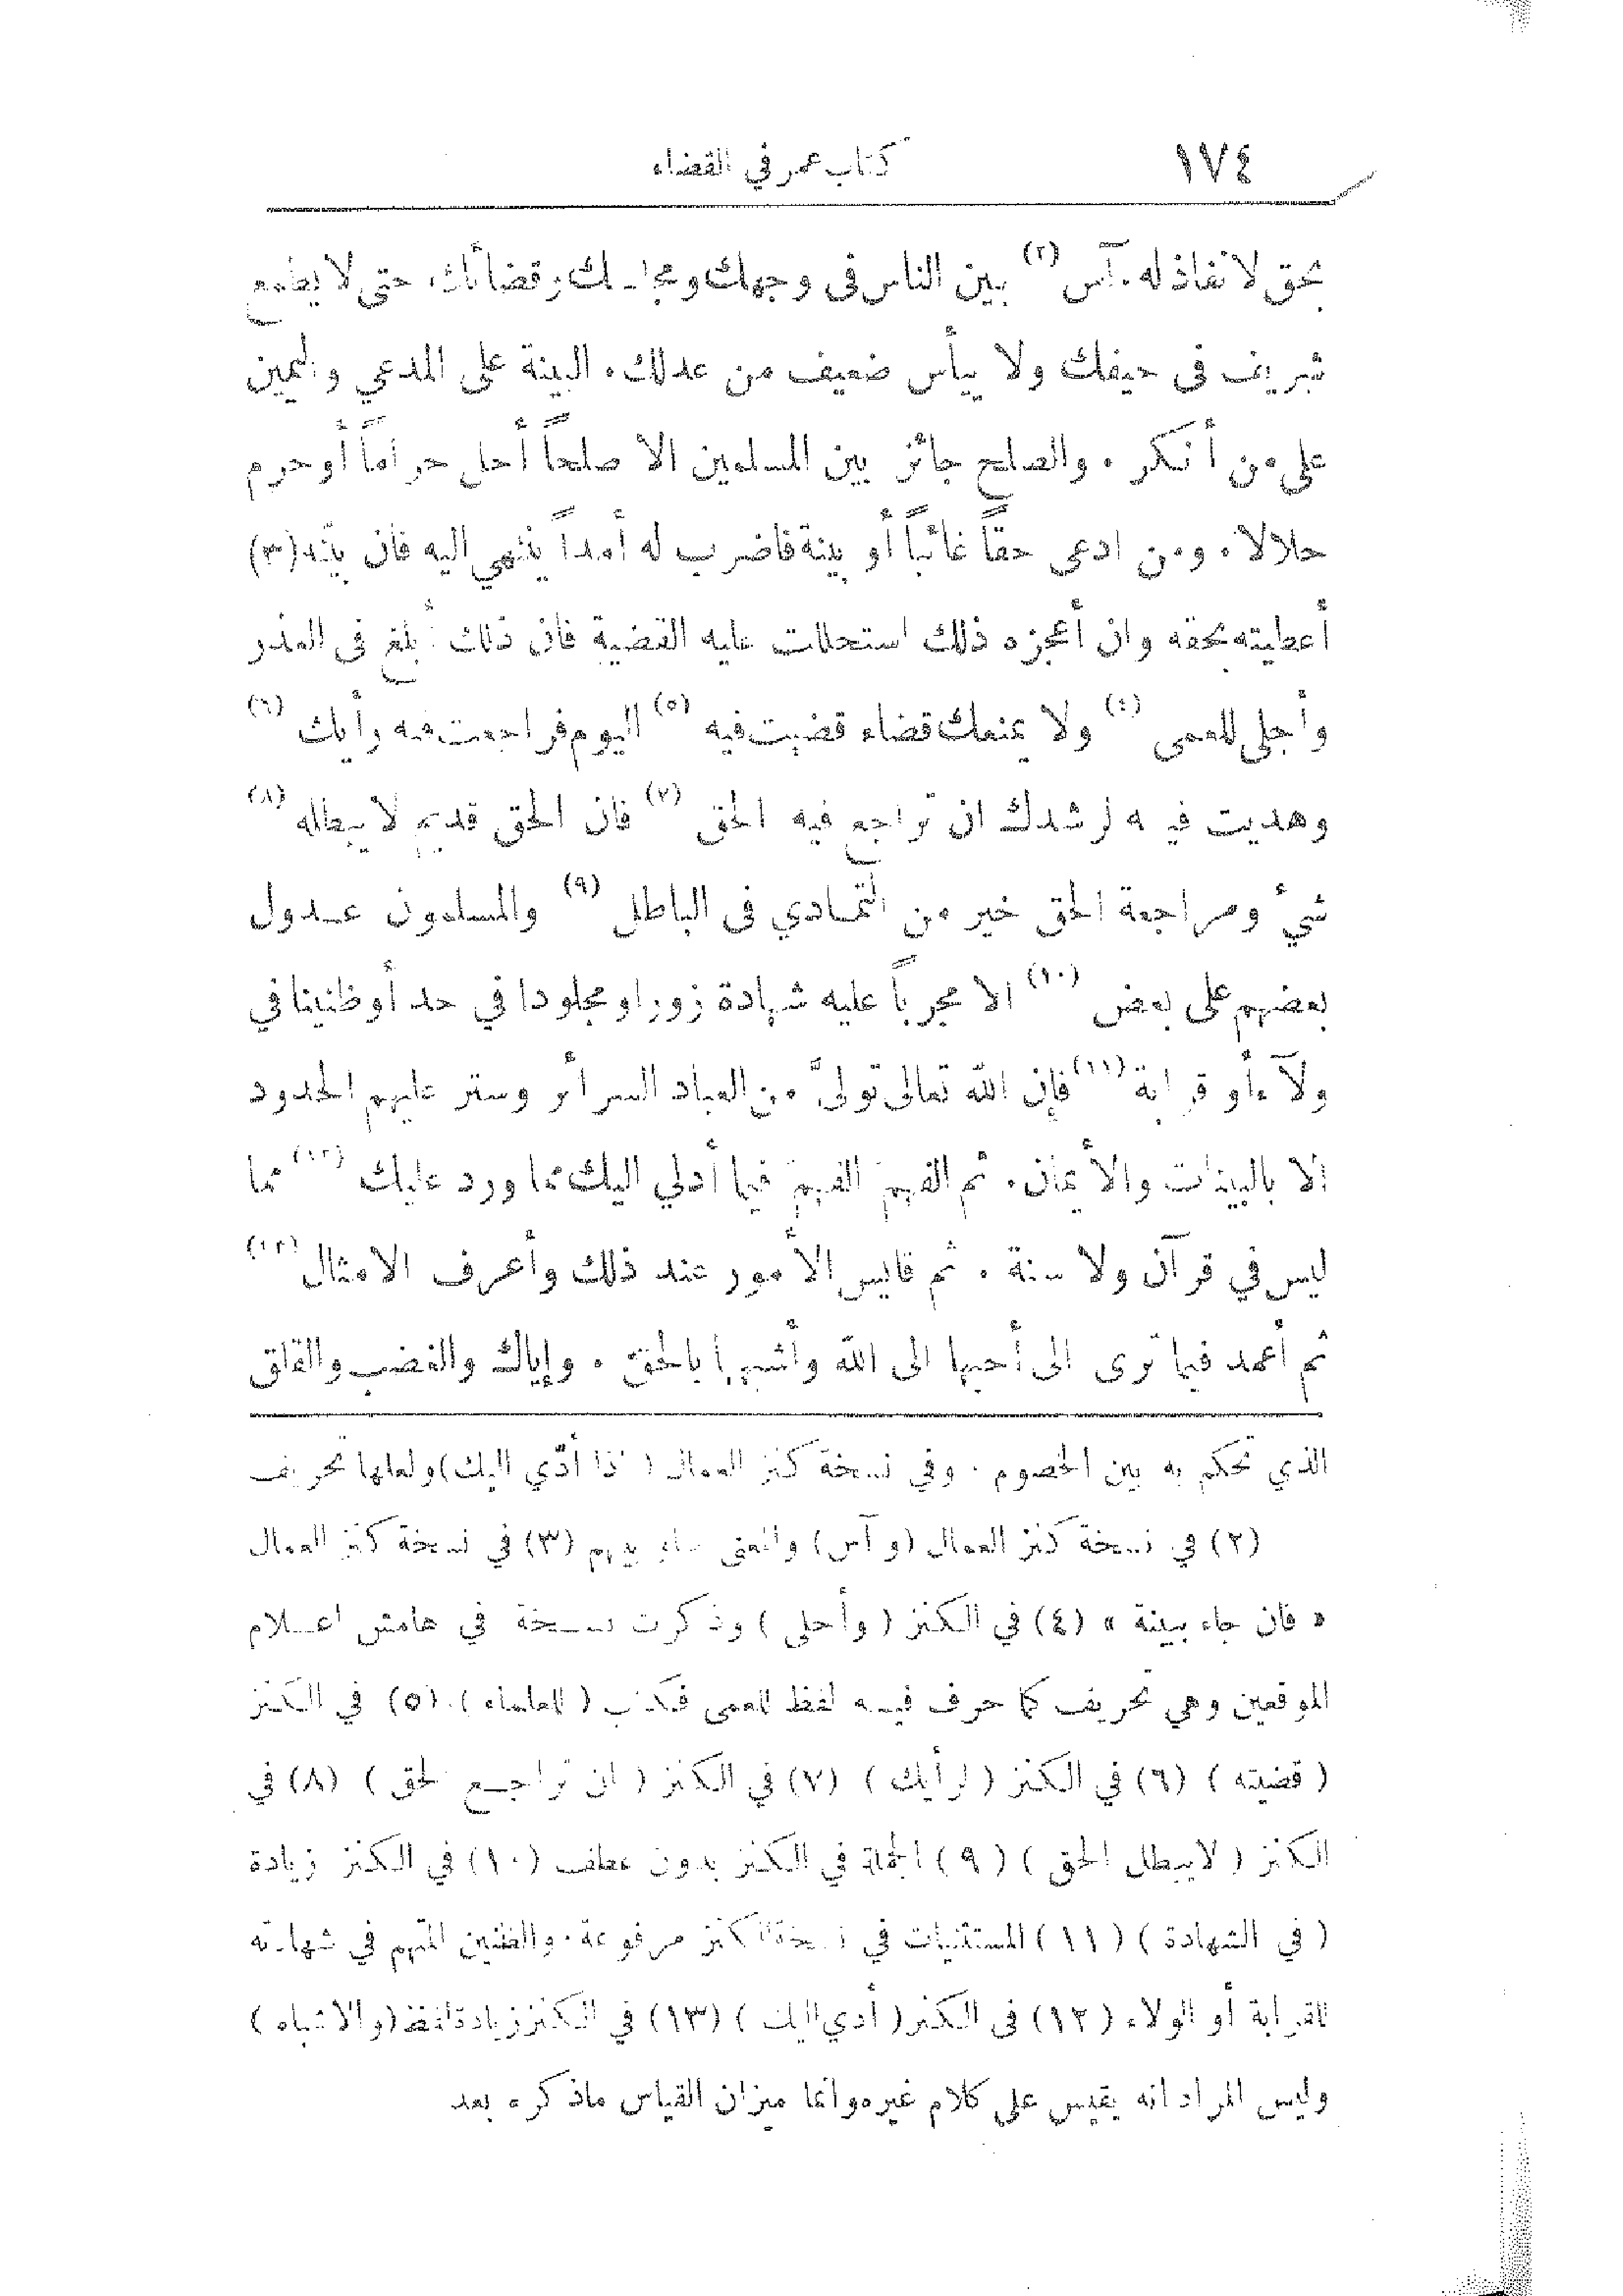 ١٧٤ كتاب عمر في القضاء
بحق لا نفاذ له. آس (٢) بين الناس فى وجهك ومجلسك وقضائك، حتى لا يطمع
شريف فى حيفك ولا ييأس ضعيف من عدلك. البينة على المدعي واليمين
على من أنكر. والصلح جائز بين المسلمين الا صلحاً أحل حراماً أو حرم
حلالا. ومن ادعى حقاً غائباً أو بينة فاضرب له أمداً ينتهي اليه فان بينه (٣)
أعطيته بحقه وان أعجزه ذلك استحللت عليه القضية فان ذلك أبلغ فى العذر
وأجلى للعمى (٤) ولا يمنعك قضاء قضيت فيه (٥) اليوم فراجعت فيه رأيك (٦)
وهديت فيه لرشدك ان تراجع فيه الحق (٧) فان الحق قديم لا يبطله (٨)
شيء ومراجعة الحق خير من التمادي فى الباطل (٩) والمسلمون عدول
بعضهم على بعض (١٠) الا مجرباً عليه شهادة زور او مجلودا في حد أو ظنينا في
ولآء أو قرابة (١١) فإن الله تعالى تولىَّ من العباد السرائر وستر عليهم الحدود
الا بالبينات والأيمان. ثم الفهم الفهم فيما أدلي اليك مما ورد عليك (١٢) مما
ليس في قرآن ولا سنة. ثم قايس الأمور عند ذلك وأعرف الامثال (١٣)
ثم أعمد فيما ترى الى أحبها الى الله وأشبهها بالحق. وإياك والغضب والقلق
الذي تحكم به بين الخصوم. وفي نسخة كنز العمال (اذا أدّي اليك) ولعلها تحريف
(٢) في نسخة كنز العمال (وآس) والمعنى ساو بينهم (٣) في نسخة كنز العمال
« فان جاء ببينة » (٤) في الكنز (وأحلى) وذكرت نسخة في هامش اعلام
الموقعين وهي تحريف كما حرف فيه لفظ للعمى فكتب (للعلماء). (٥) في الكنز
(قضيته) (٦) في الكنز (لرأيك) (٧) في الكنز (ان تراجع الحق) (٨) في
الكنز (لا يبطل الحق) (٩) الجملة في الكنز بدون عطف (١٠) في الكنز زيادة
(في الشهادة) (١١) المستثنيات في نسخة الكنز مرفوعة. والظنين المتهم في شهادته
للقرابة أو الولاء (١٢) فى الكنز (أدي اليك) (١٣) في الكنز زيادة لفظ (والاشباه)
وليس المراد انه يقيس على كلام غيره وانما ميزان القياس ماذكره بعد